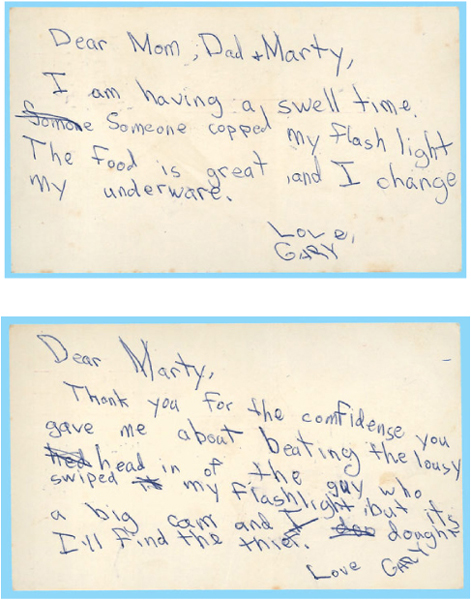 Dear Mom, Dad + Marty,
I am having a swell time.
Somone Someone copped my flash light
The Food is great, and I change
my underware.
Love,
GARY
Dear Marty,
Thank you for the comfidense you
gave me about beating the lousy
hed head in of the guy who
swiped it my flashlight, but its
a big cam and I dough
I'll find the thief.
Love GARY